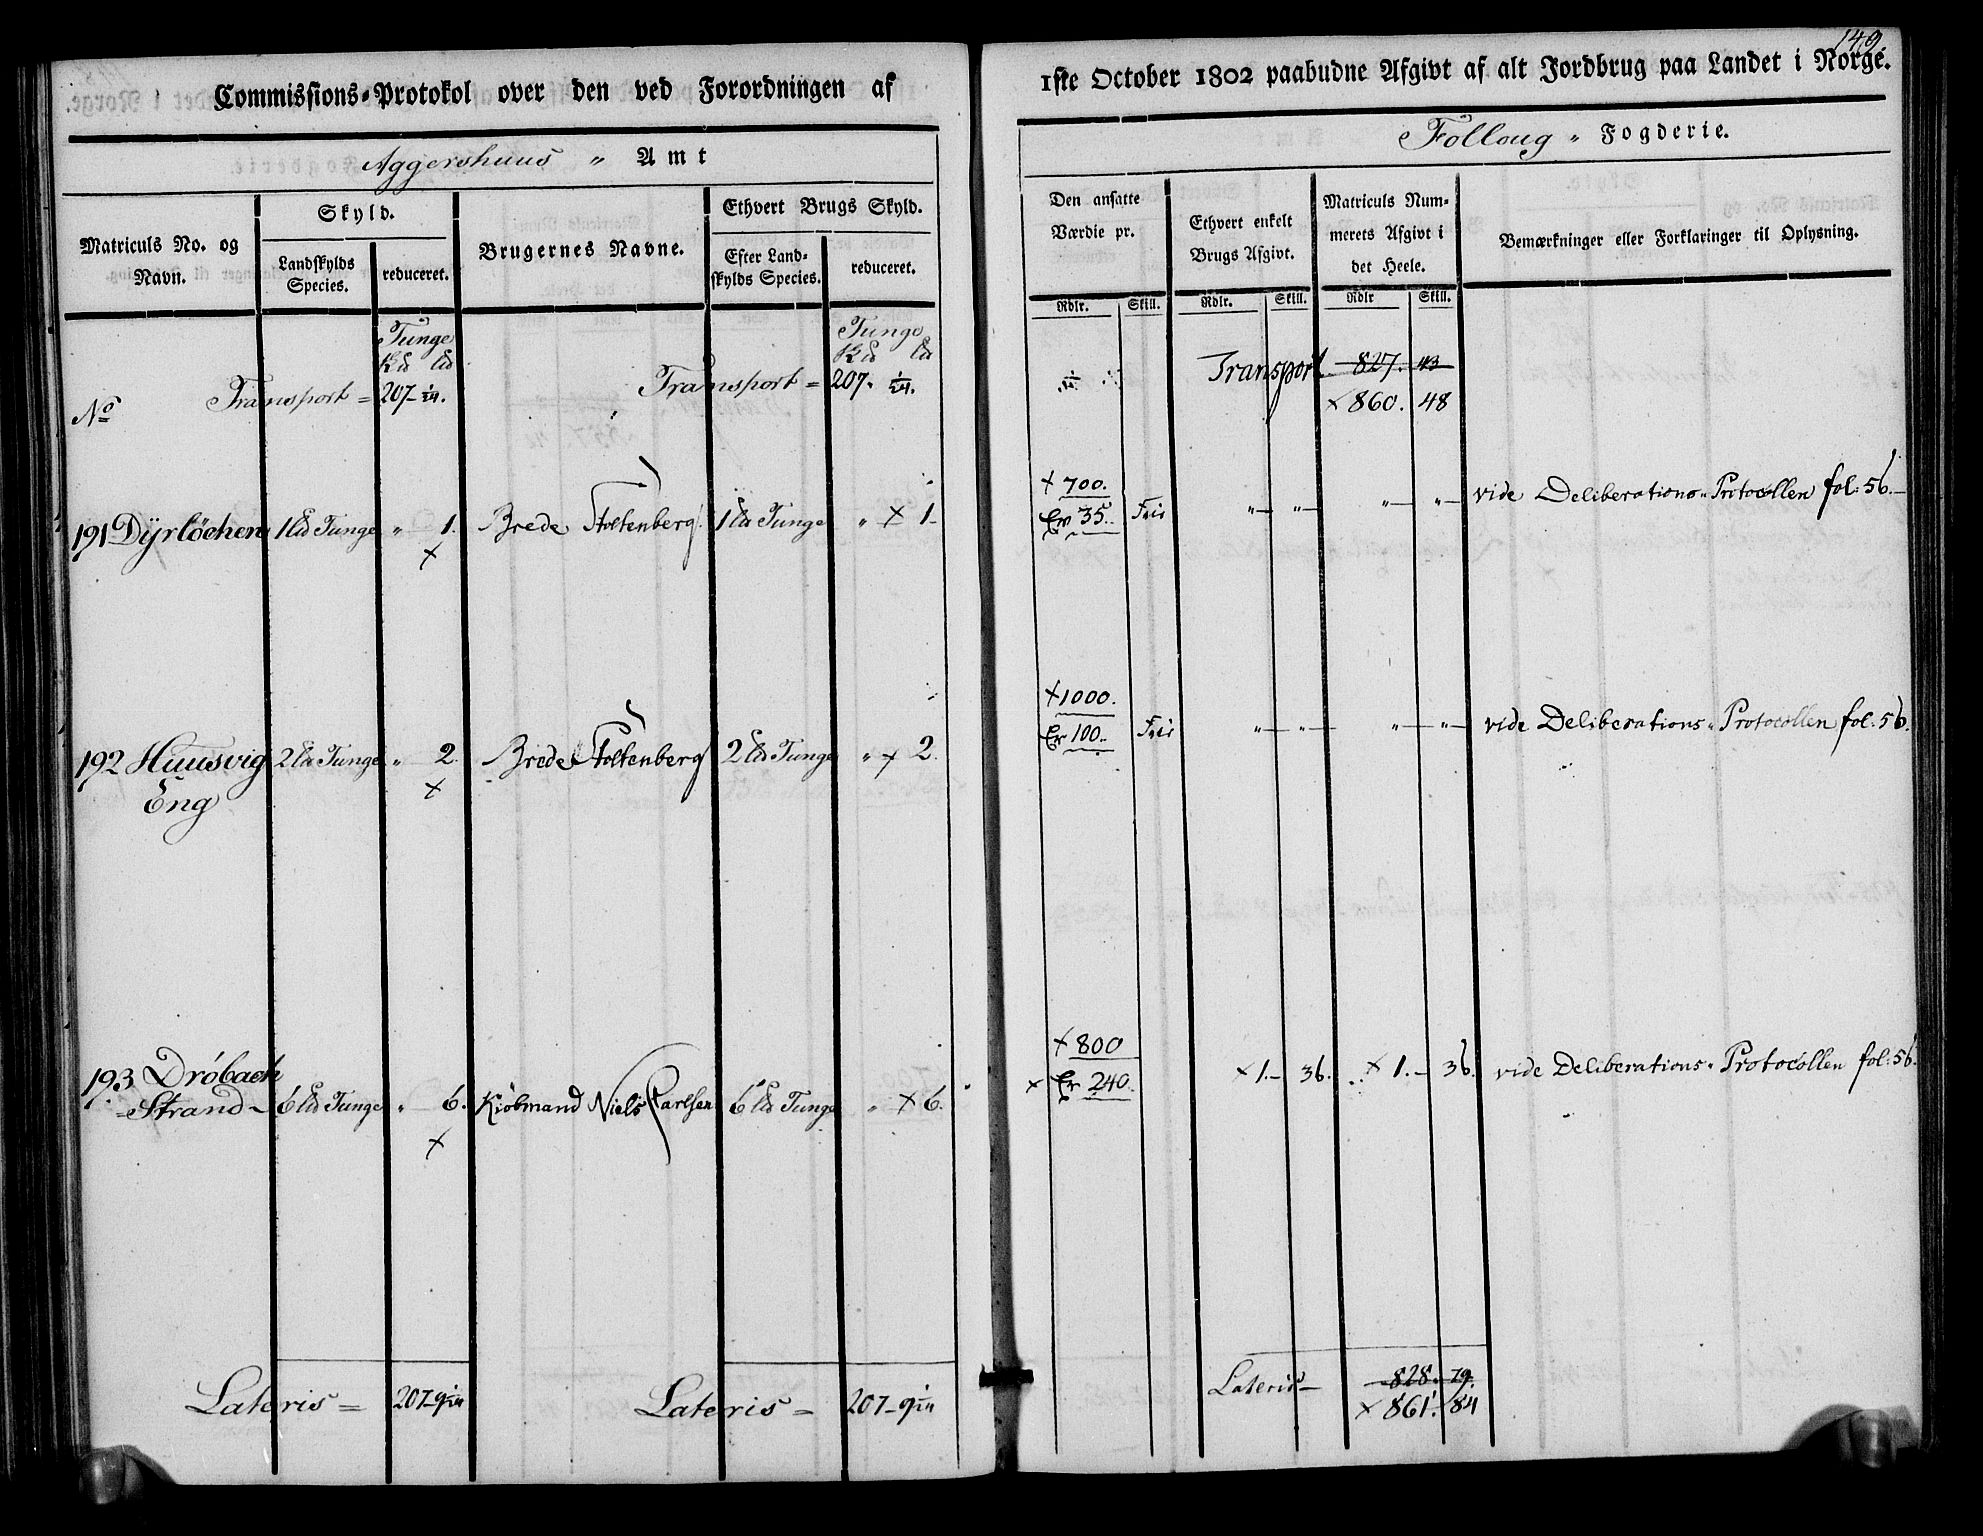 Commissions-Protokol over den ved Forordningen af
Aggershuus " Amt
Matriculs No. og Navn.
Skyld.
Landskylds Species.
reduceret.
Brugernes Navne.
Ethvert Brugs Skyld.
Efter Land-
skylds Species.
reduceret.
Tunge
Tunge
No Transport = 207- 1/24. Transport = 207. 1/24.
191 Dÿrlöchen 1 Ld Tunge " 1. Brede Stoltenberg 1 Ld Tunge " × 1.
×
192 Huusvig 2 Ld Tunge " 2. Brede Stoltenberg 2 Ld Tunge " × 2.
Eng ×
193 Dröbach
Strand - 6 Ld Tunge " 6. Kiöbmand Niels Carlsen 6 Ld Tunge " × 6.
×
Lateris = 207-9 1/24 Lateris = 207-9 1/24
149.
1ste October 1802 paabudne Afgivt af alt Jordbrug paa Landet i Norge.
Folloug " Fogderie.
Den ansatte
Værdie pr.
Ethvert enkelt
Brugs Afgivt.
Matriculs Num-
merets Afgivt i
det Heele.
Bemærkninger eller Forklaringer til Oplysning.
Rdlr. Skill. Rdlr. Skill. Rdlr Skill.
Transport 827. 43
× 860. 48
× 700.
Er 35. Frie " " " " vide Deliberations-Protocollen fol: 56.
× 1000.
Er 100. Frie " " " " vide Deliberations-Protocollen fol: 56.
× 800
× Er 240. × 1. - 36. × 1. - 36. vide Deliberations-Protocollen fol: 56.
Lateris - 828. 79.
× 861. 84